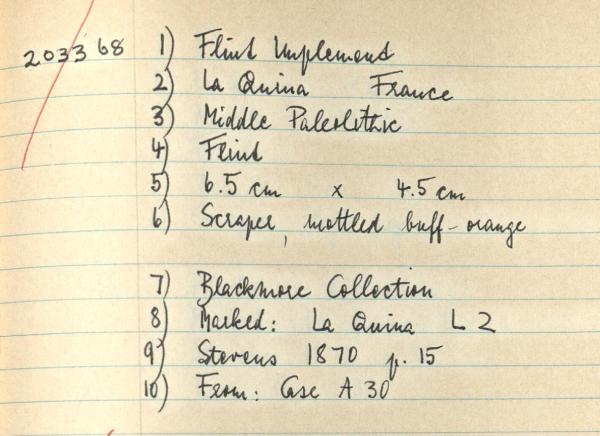 203368 1) Flint Implement
2) La Quina France
3) Middle Paleolithic
4) Flint
5) 6.5 cm x 4.5 cm
6) Scraper, mottled buff-orange
7) Blackmore Collection
8) Marked: La Quina L 2
9) Stevens 1870 p. 15
10) From: Case A 30